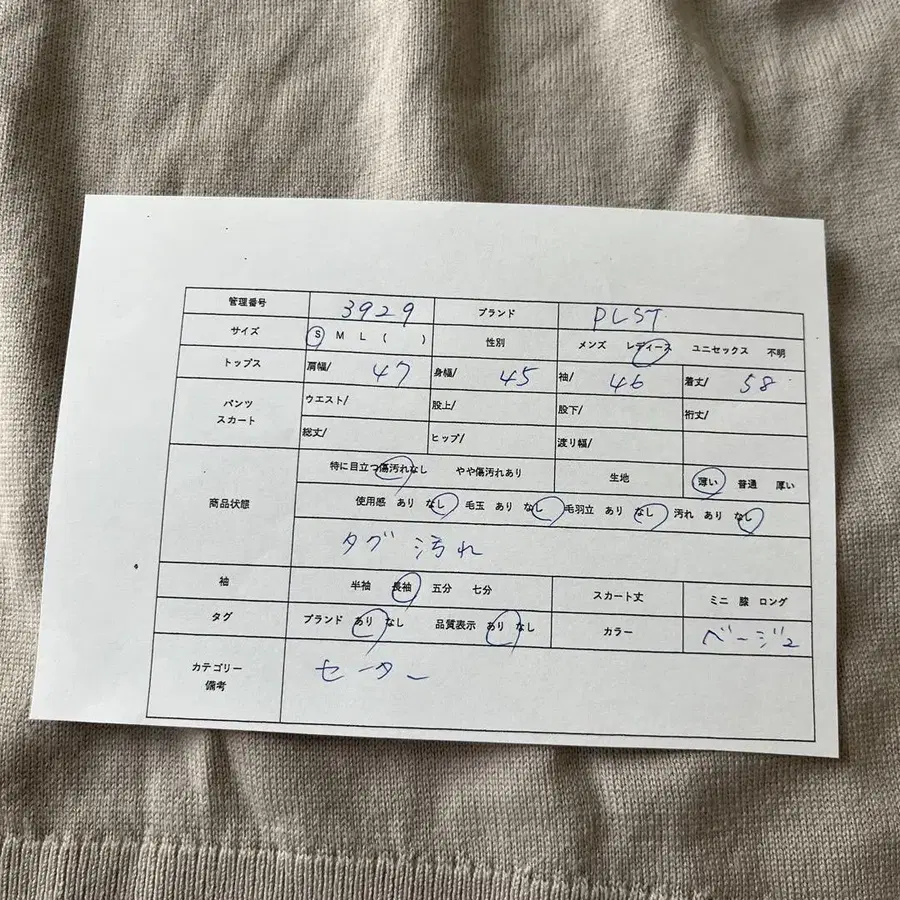 管理番号 3929 ブランド PLST
サイズ S M L ( ) 性別 メンズ レディース ユニセックス 不明
トップス 肩幅/ 47 身幅/ 45 袖/ 46 着丈/ 58
パンツ スカート ウエスト/ 股上/ 股下/ 裄丈/
総丈/ ヒップ/ 渡り幅/
商品状態 特に目立つ傷汚れなし やや傷汚れあり 生地 薄い 普通 厚い
使用感 あり なし 毛玉 あり なし 毛羽立 あり なし 汚れ あり なし
タグ 汚れ
袖 半袖 長袖 五分 七分 スカート丈 ミニ 膝 ロング
タグ ブランド あり なし 品質表示 あり なし カラー ベージュ
カテゴリー 備考 セーター